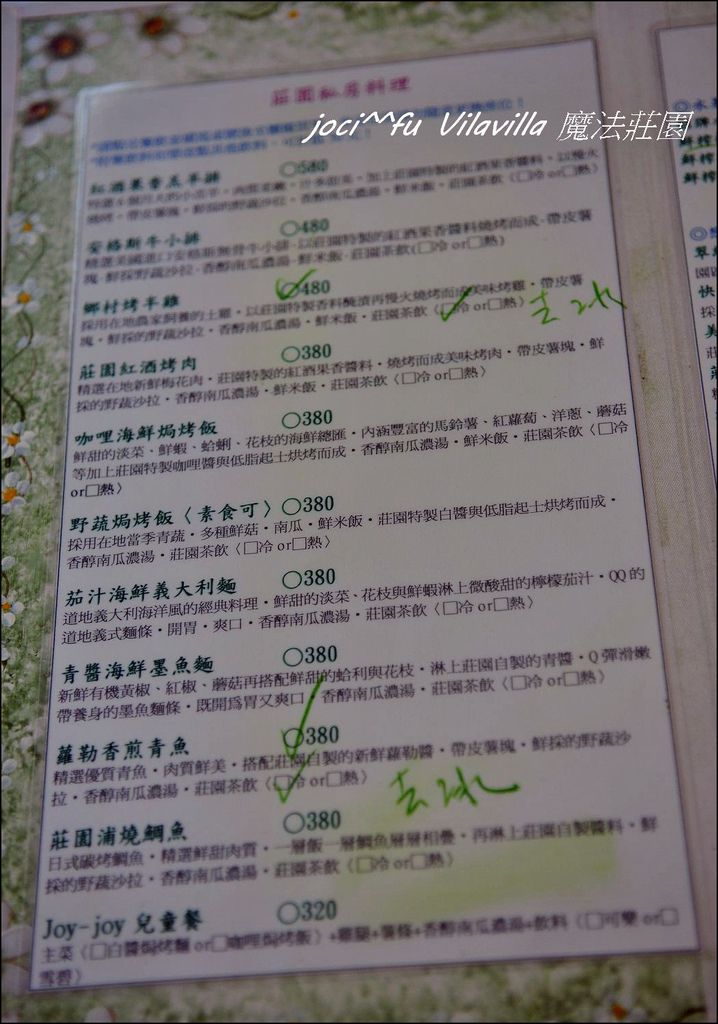 莊園私房料理
joci^^fu Vilavilla 魔法莊園
紅酒果香羔羊排 ○580
安格斯牛小排 ○480
精選美國進口安格斯無骨牛小排·以莊園特製的紅酒果香醬料燒烤而成·帶皮薯
塊·鮮採野蔬沙拉·香醇南瓜濃湯·鮮米飯·莊園茶飲(□冷 or□熱)
鄉村烤半雞 ○480
採用在地農家飼養的土雞·以莊園特製香料醃漬再慢火燒烤而成美味烤雞·帶皮薯
塊·鮮採的野蔬沙拉·香醇南瓜濃湯·鮮米飯·莊園茶飲〈□冷 or□熱〉 去冰
莊園紅酒烤肉 ○380
精選在地新鮮梅花肉·莊園特製的紅酒果香醬料·燒烤而成美味烤肉·帶皮薯塊·鮮
採的野蔬沙拉·香醇南瓜濃湯·鮮米飯·莊園茶飲〈□冷 or□熱〉
咖哩海鮮焗烤飯 ○380
鮮甜的淡菜、鮮蝦、蛤蜊、花枝的海鮮總匯·內涵豐富的馬鈴薯、紅蘿蔔、洋蔥、蘑菇
等加上莊園特製咖哩醬與低脂起士烘烤而成·香醇南瓜濃湯·鮮米飯·莊園茶飲〈□冷
or□熱〉
野蔬焗烤飯〈素食可〉○380
採用在地當季青蔬·多種鮮菇·南瓜·鮮米飯·莊園特製白醬與低脂起士烘烤而成·
香醇南瓜濃湯·莊園茶飲〈□冷 or□熱〉
茄汁海鮮義大利麵 ○380
道地義大利海洋風的經典料理·鮮甜的淡菜、花枝與鮮蝦淋上微酸甜的檸檬茄汁·QQ 的
道地義式麵條·開胃·爽口·香醇南瓜濃湯·莊園茶飲〈□冷 or□熱〉
青醬海鮮墨魚麵 ○380
新鮮有機黃椒、紅椒、蘑菇再搭配鮮甜的蛤利與花枝·淋上莊園自製的青醬·Q 彈滑嫩
帶養身的墨魚麵條·既開爲胃又爽口·香醇南瓜濃湯·莊園茶飲〈□冷 or□熱〉
蘿勒香煎青魚 ○380
精選優質青魚·肉質鮮美·搭配莊園自製的新鮮蘿勒醬·帶皮薯塊·鮮採的野蔬沙
拉·香醇南瓜濃湯·莊園茶飲〈□冷 or□熱〉
去冰
莊園浦燒鯛魚 ○380
日式碳烤鯛魚·精選鮮甜肉質·一層飯一層鯛魚層層相疊·再淋上莊園自製醬料·鮮
採的野蔬沙拉·香醇南瓜濃湯·莊園茶飲〈□冷 or□熱〉
Joy-joy 兒童餐 ○320
主菜〈□白醬焗烤麵 or□咖哩焗烤飯〉+雞腿+薯條+香醇南瓜濃湯+飲料〈□可樂 or□
雪碧〉